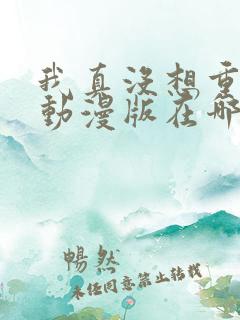 我真没想重
動漫版在哪
暢然
未经同意禁止转载